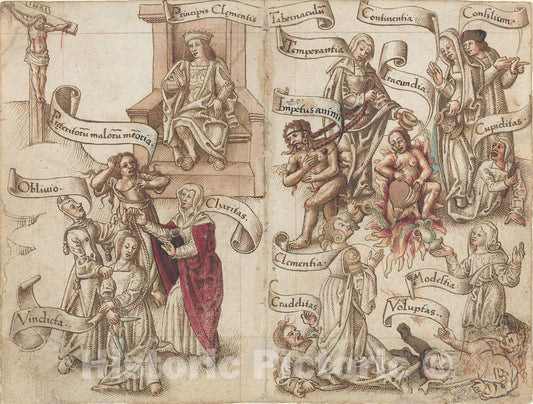 INRI
Principis Clementis
Tabernaculū
Continentia
Consilium
Temperantia
Iracundia
Impetus animi
Cupiditas
Preteritorū malorū meōria
Oblivio
Charitas
Clementia
Modestia
Crudelitas
Voluptas
Vindicta
Historic Pictoric ©